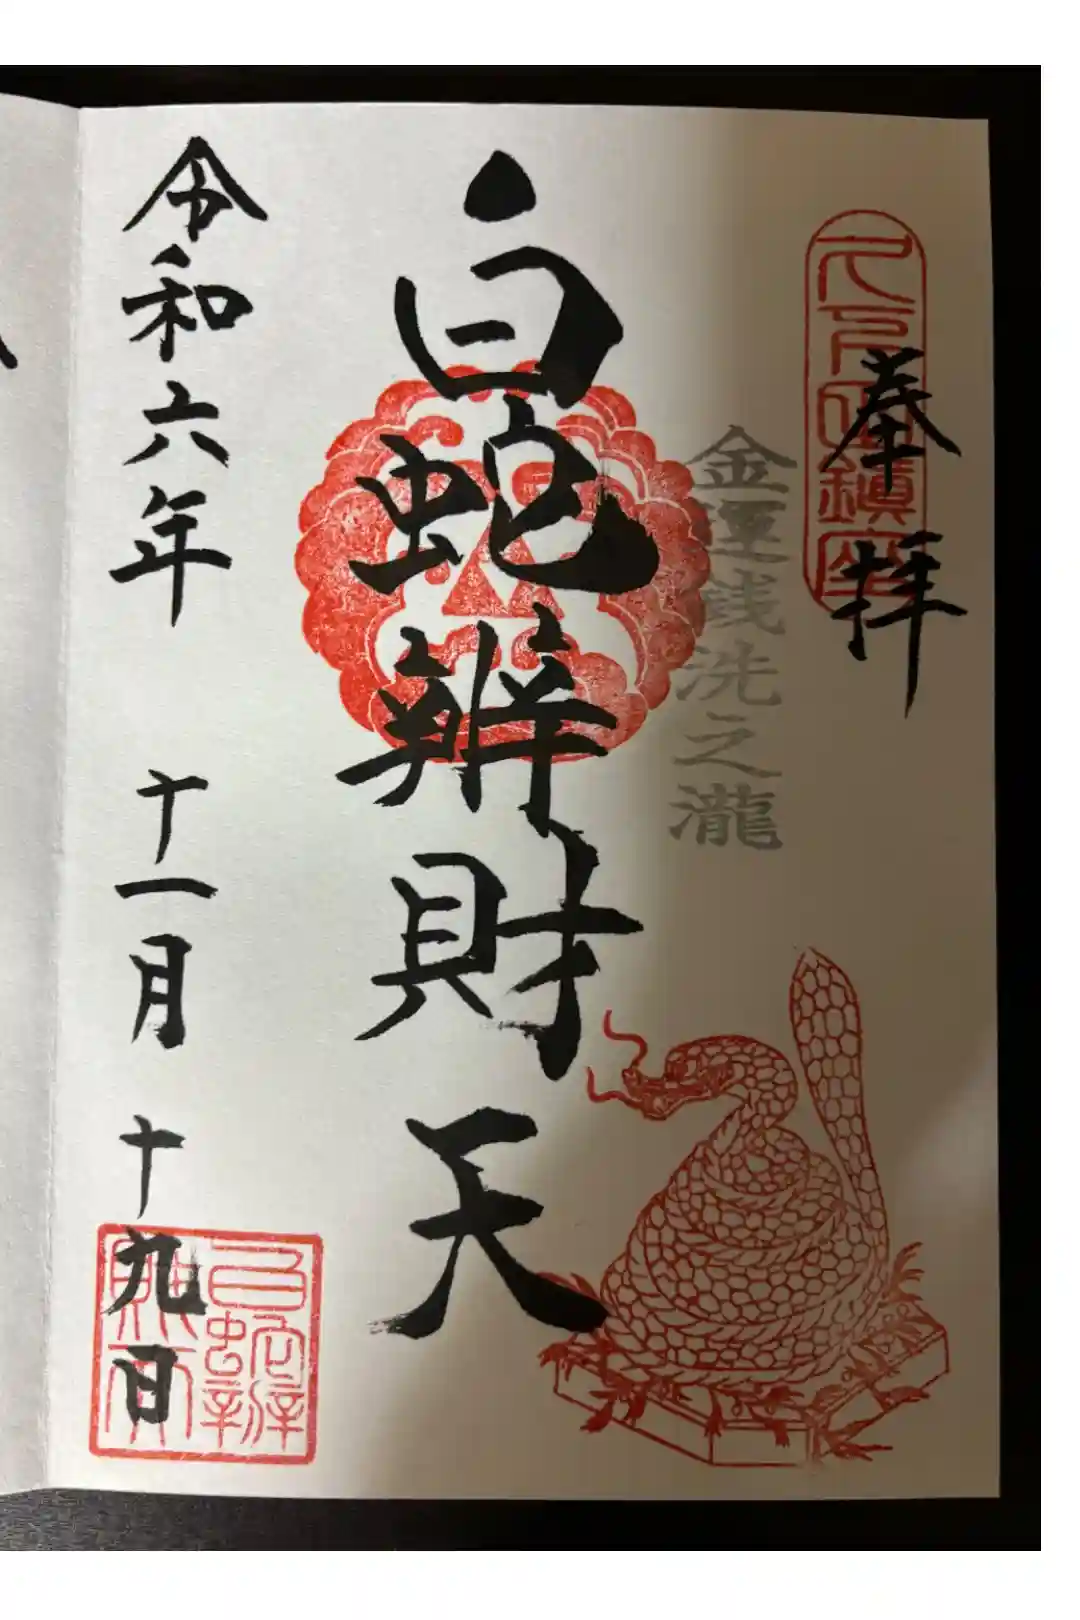 鎮座
奉拝
金運銭洗之瀧
白蛇辨財天
令和六年 十一月 十九日
白蛇辨
財天